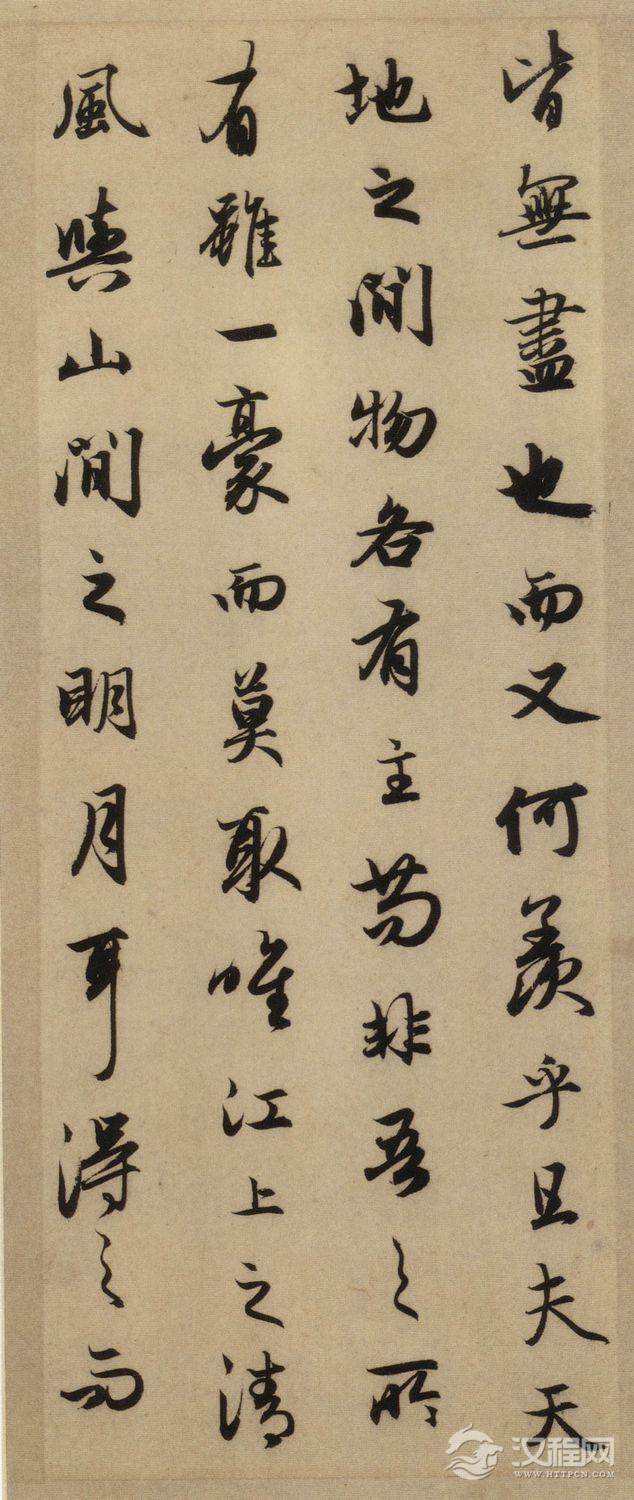 皆無盡也而又何羨乎且夫天
地之間物各有主苟非吾之所
有雖一豪而莫取唯江上之清
風與山間之明月耳得之而
汉程网
WWW.HTTPCN.COM